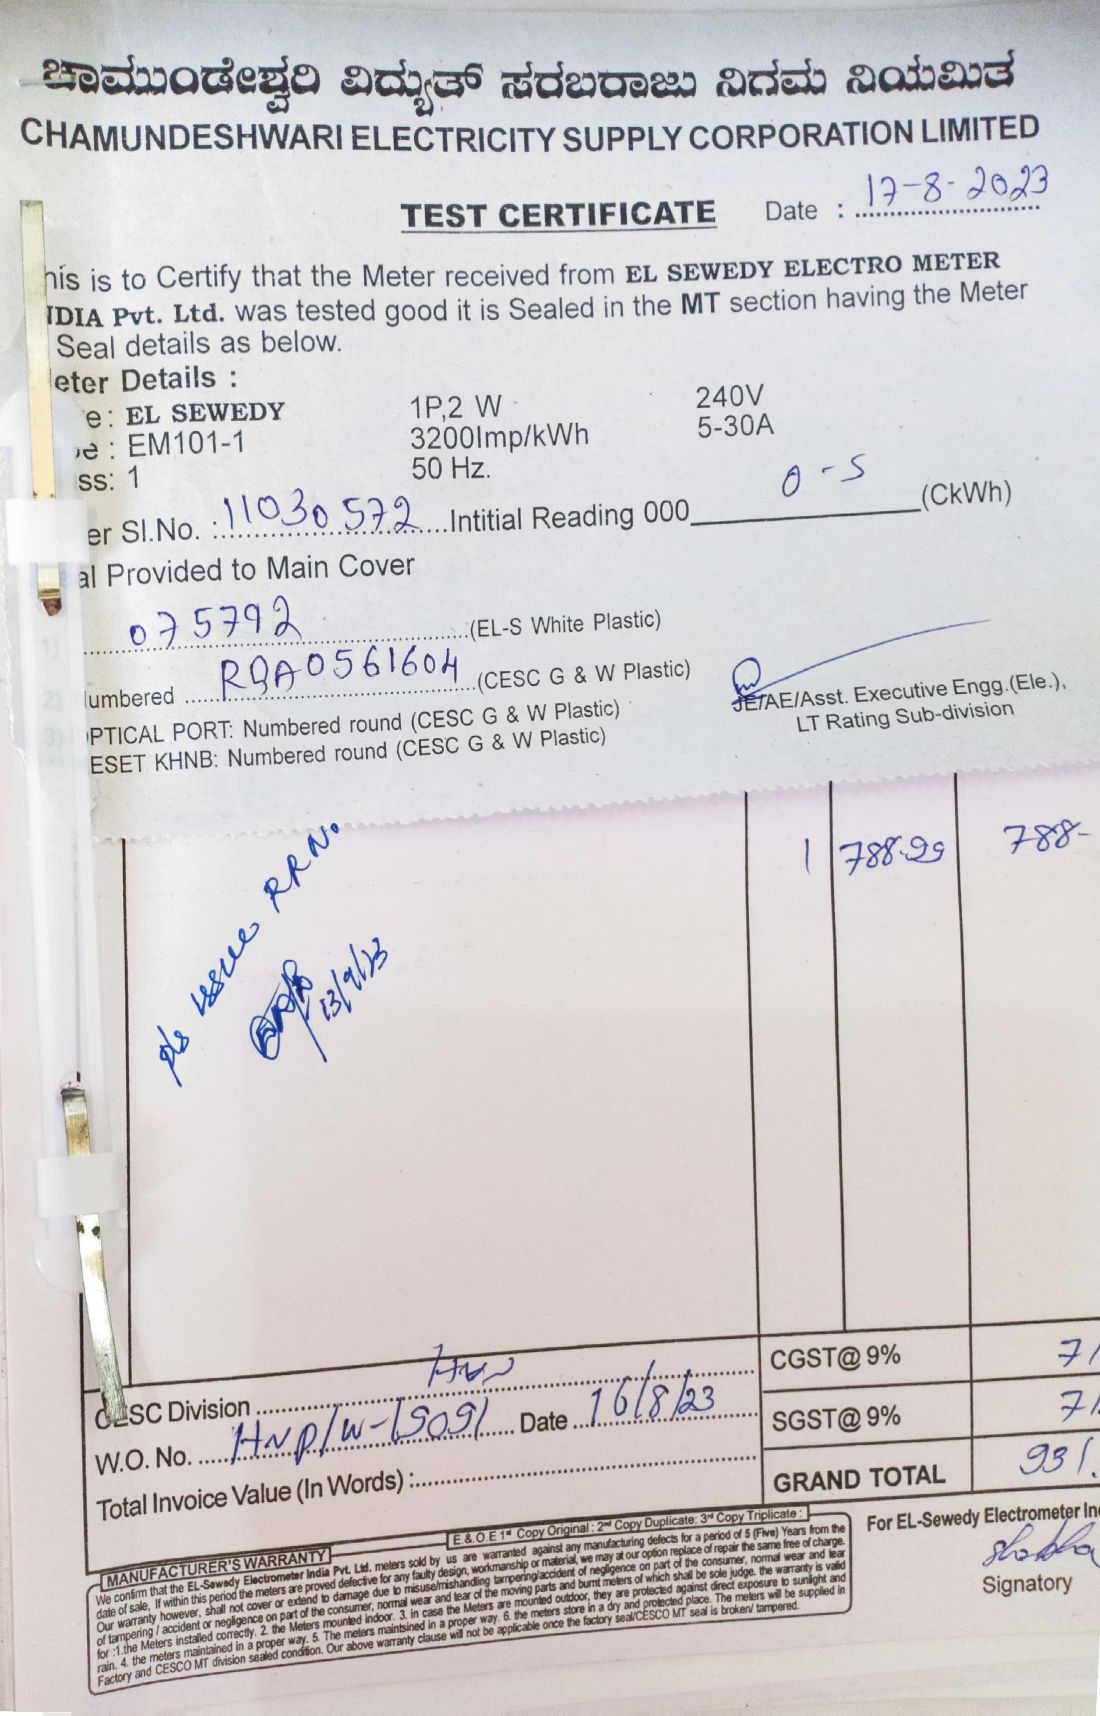 ಚಾಮುಂಡೇಶ್ವರಿ ವಿದ್ಯುತ್ ಸರಬರಾಜು ನಿಗಮ ನಿಯಮಿತ
CHAMUNDESHWARI ELECTRICITY SUPPLY CORPORATION LIMITED
TEST CERTIFICATE Date : 17-8-2023
his is to Certify that the Meter received from EL SEWEDY ELECTRO METER
NDIA Pvt. Ltd. was tested good it is Sealed in the MT section having the Meter
Seal details as below.
eter Details :
e: EL SEWEDY 1P,2 W 240V
e : EM101-1 3200Imp/kWh 5-30A
ss: 1 50 Hz.
er Sl.No. : 11030572 Intitial Reading 000 0-5 (CkWh)
al Provided to Main Cover
1) 075792 (EL-S White Plastic)
2) umbered RQA0561604 (CESC G & W Plastic)
3) PTICAL PORT: Numbered round (CESC G & W Plastic)
ESET KHNB: Numbered round (CESC G & W Plastic)
JE/AE/Asst. Executive Engg.(Ele.),
LT Rating Sub-division
1 788-99 788-
pls issue RR No.
13/9/23
CGST@ 9% 71
CESC Division
SGST@ 9% 71
W.O. No. Date 16/8/23
GRAND TOTAL 931.
Total Invoice Value (In Words) :
E.& O.E 1st Copy Original : 2nd Copy Duplicate: 3rd Copy Triplicate :
For EL-Sewedy Electrometer Ind
Signatory
MANUFACTURER'S WARRANTY
We confirm that the EL-Sewedy Electrometer India Pvt. Ltd. meters sold by us are warranted against any manufacturing defects for a period of 5 (Five) Years from the
date of sale, If within this period the meters are proved defective for any faulty design, workmanship or material, we may at our option replace of repair the same free of charge.
Our warranty however, shall not cover or extend to damage due to misuse/mishandling tampering/accident of negligence on part of the consumer, normal wear and tear
of tampering / accident or negligence on part of the consumer, normal wear and tear of the moving parts and burnt meters of which shall be sole judge. the warranty is valid
for :1.the Meters installed correctly. 2. the Meters mounted indoor. 3. in case the Meters are mounted outdoor, they are protected against direct exposure to sunlight and
rain. 4. the meters maintained in a proper way. 5. The meters maintsined in a proper way. 6. the meters store in a dry and protected place. The meters will be supplied in
Factory and CESCO MT division sealed condition. Our above warranty clause will not be applicable once the factory seal/CESCO MT seal is broken/ tampered.